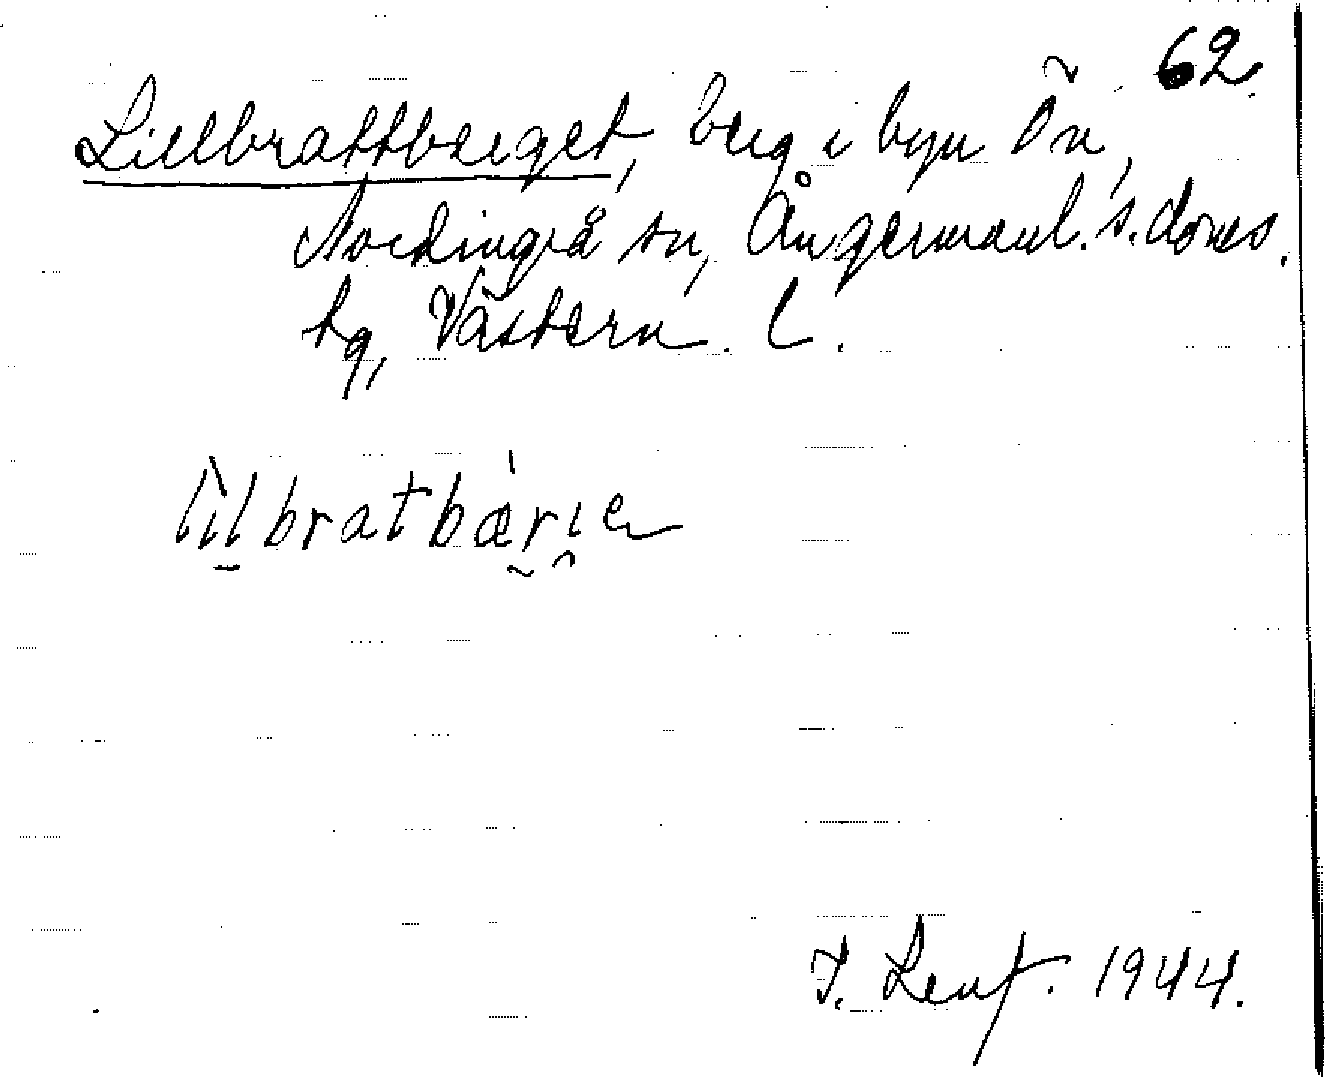 62
Lillbrattberget, berg i byn Ön,
Nordingrå sn, Ångermanl. s. doms.
tg, Västern. l.
lilbratbærıe
J. Lenf. 1944.